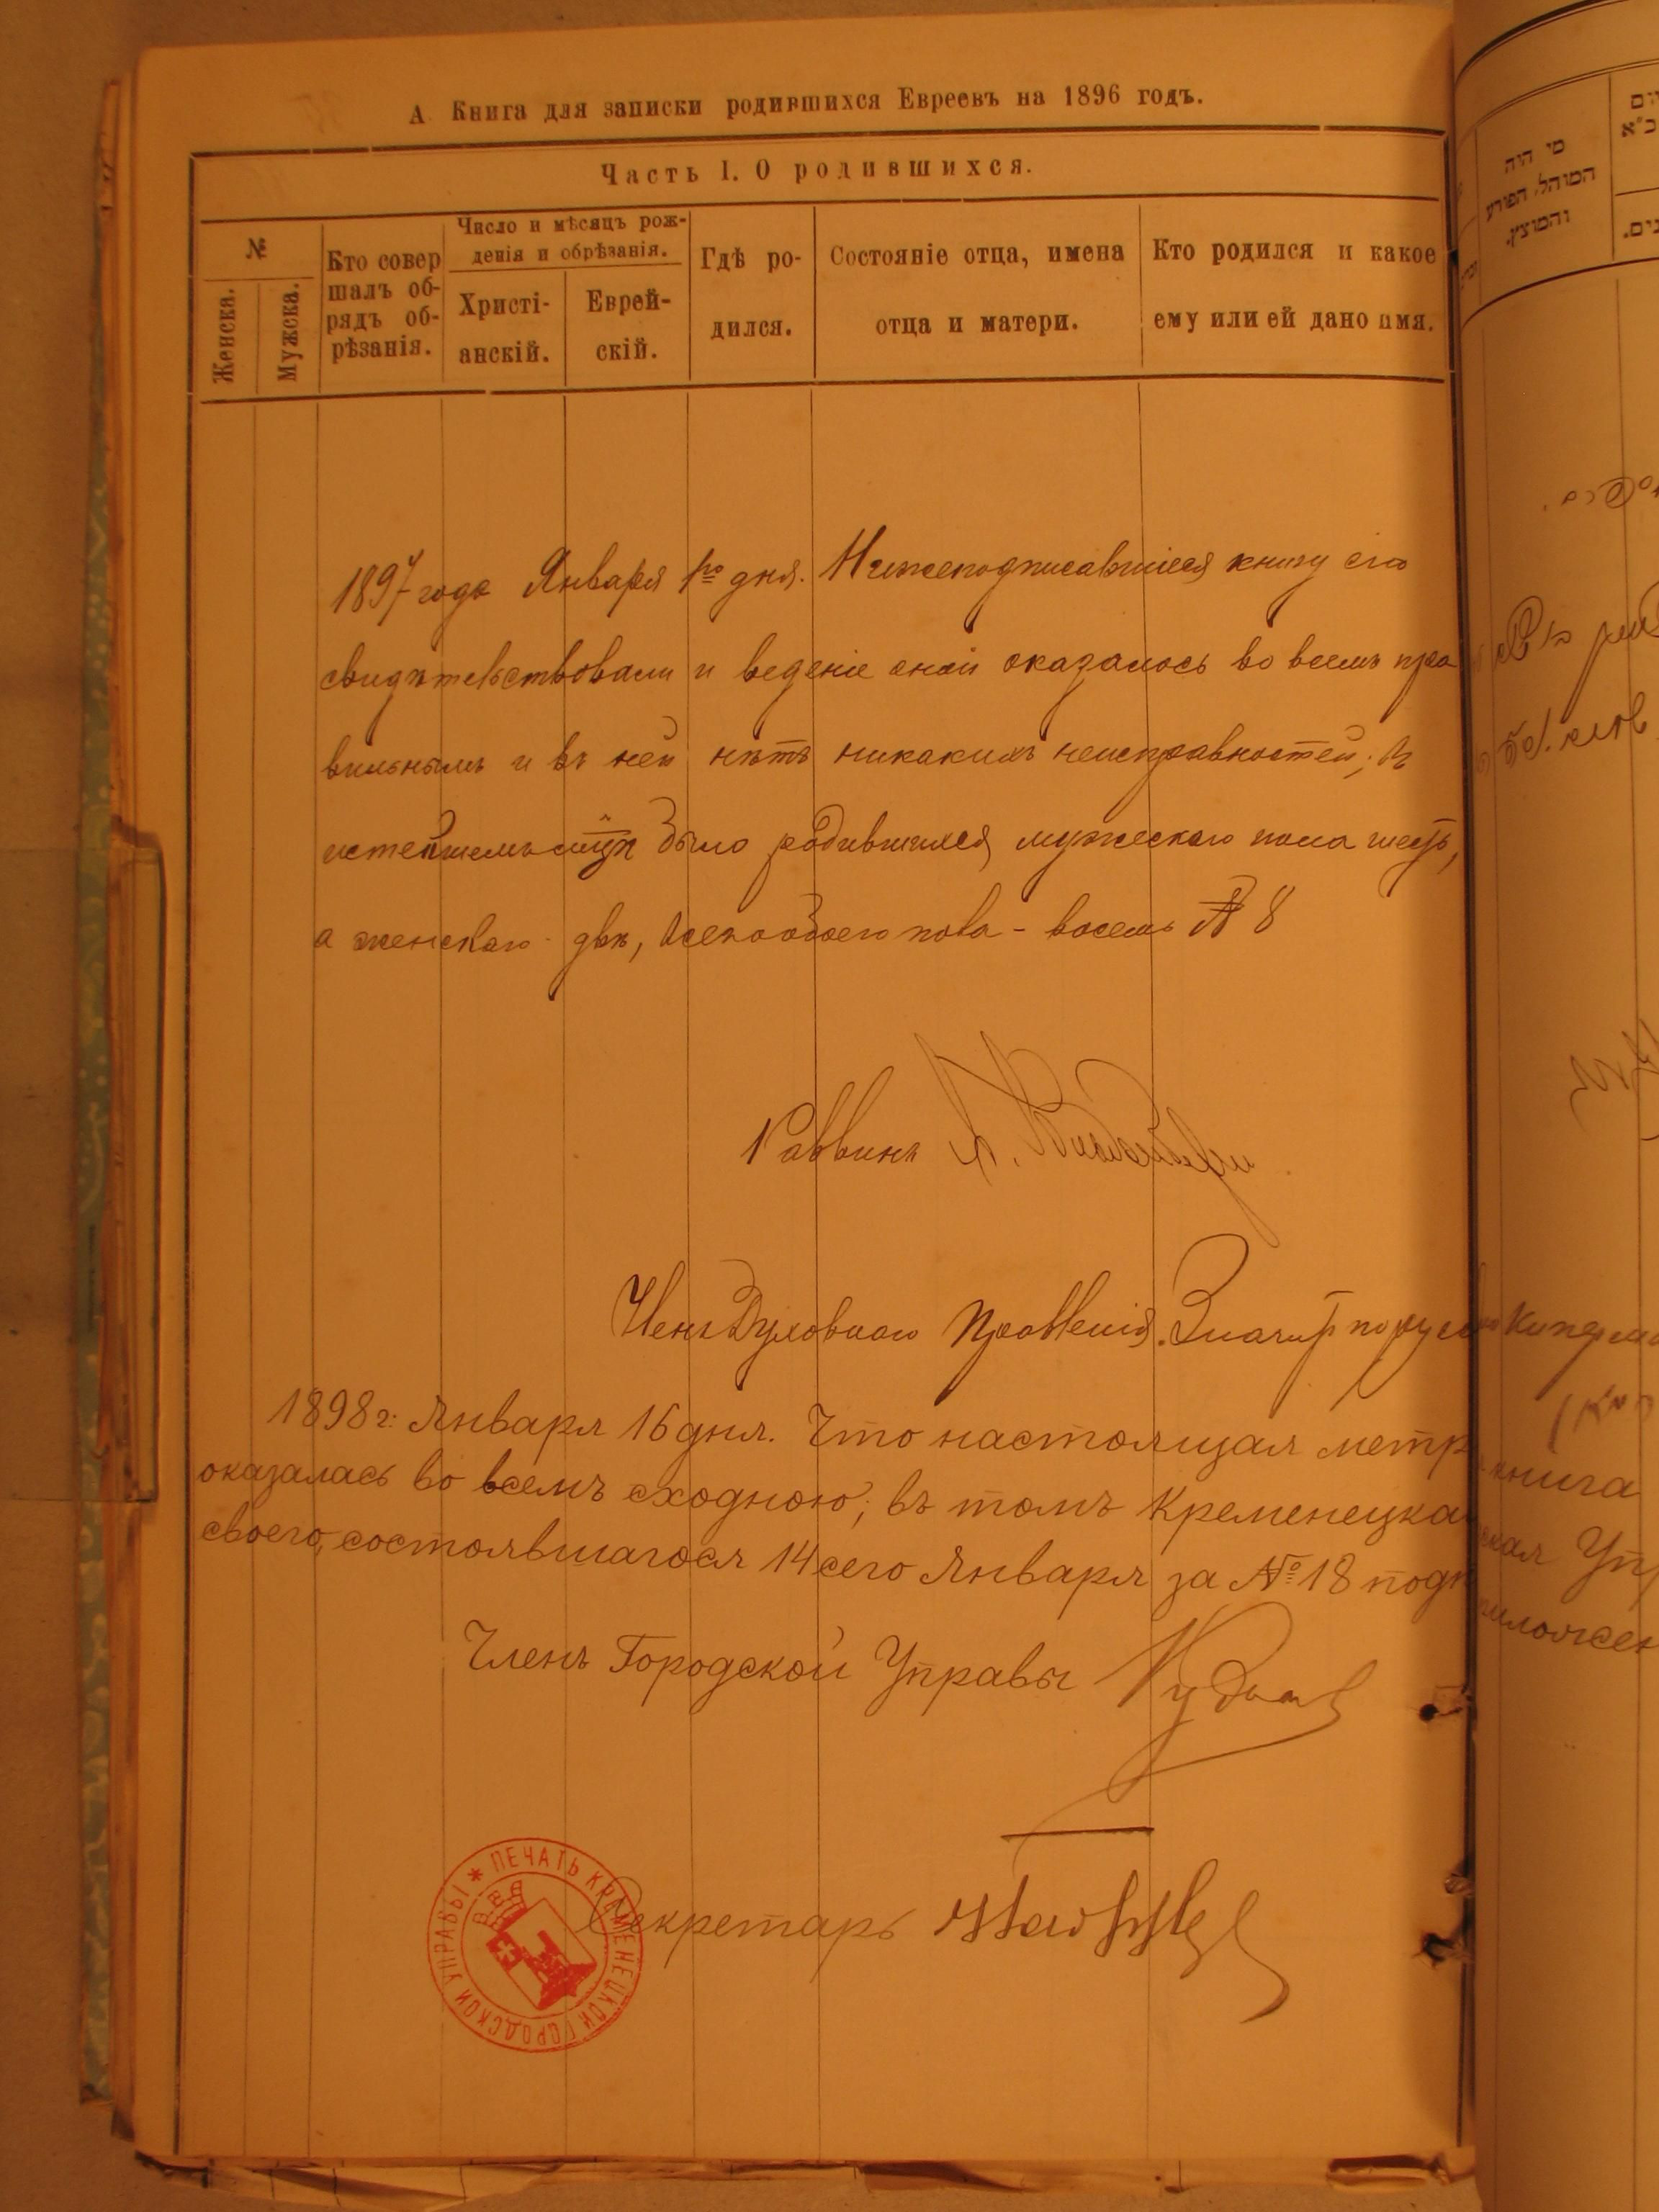 А Книга для записки родившихся Евреевъ на 1896 годъ.
Часть 1. О родившихся.
№
Женска.
Мужска.
Кто совер
шалъ об-
рядъ об-
рѣзанія.
Число и мѣсяцъ рож-
денія и обрѣзанія.
Христі-
анскій.
Еврей-
скій.
Гдѣ ро-
дился.
Состояніе отца, имена
отца и матери.
Кто родился и какое
ему или ей дано имя.
1897 года Января 1го дня. Нижеподписавшіеся книгу сію
свидѣтельствовали и веденіе оной оказалось во всемъ пра
вильнымъ и въ ней нѣтъ никакихъ неисправностей; въ
было родившихся мужескаго пола шесть,
а женскаго двѣ, всего обоего пола - восемь № 8
Раввинъ
Членъ Духовнаго Правленія. Значитъ по русски Кипер
1898 г: Января 16 дня. Что настоящая метр книга
оказалась во всемъ сходною; въ томъ Кременецкая ская Упр
своего, состоявшагося 14 сего Января за № 18 подп
Членъ Городской Управы
Секретарь
ПЕЧАТЬ КРЕМЕНЕЦКОЙ ГОРОДСКОЙ УПРАВЫ *
מי היה
המוהל, הפורע
והמוצץ.